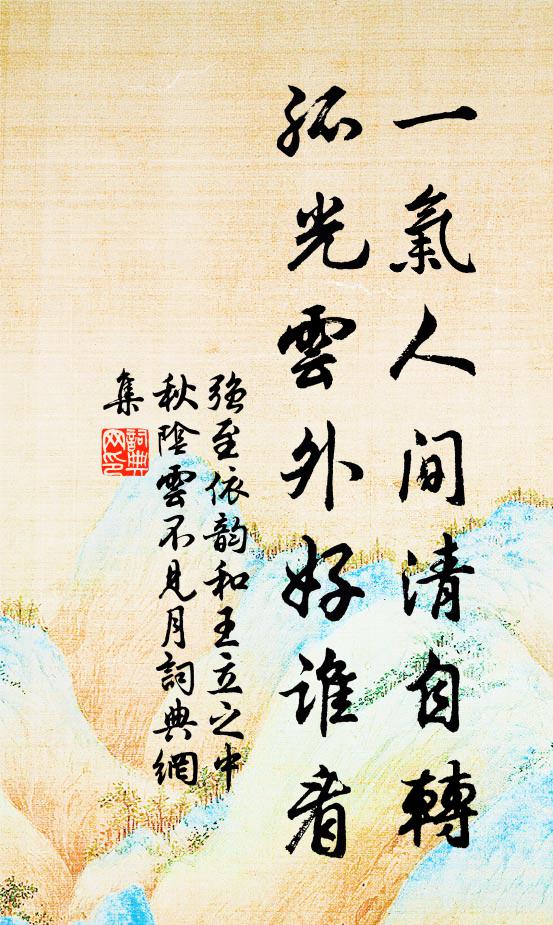 一氣人間清自轉
孤光雲外好誰看
強至依韵和王立之中
秋陰雲不見月詞典網
集
詞典
网印